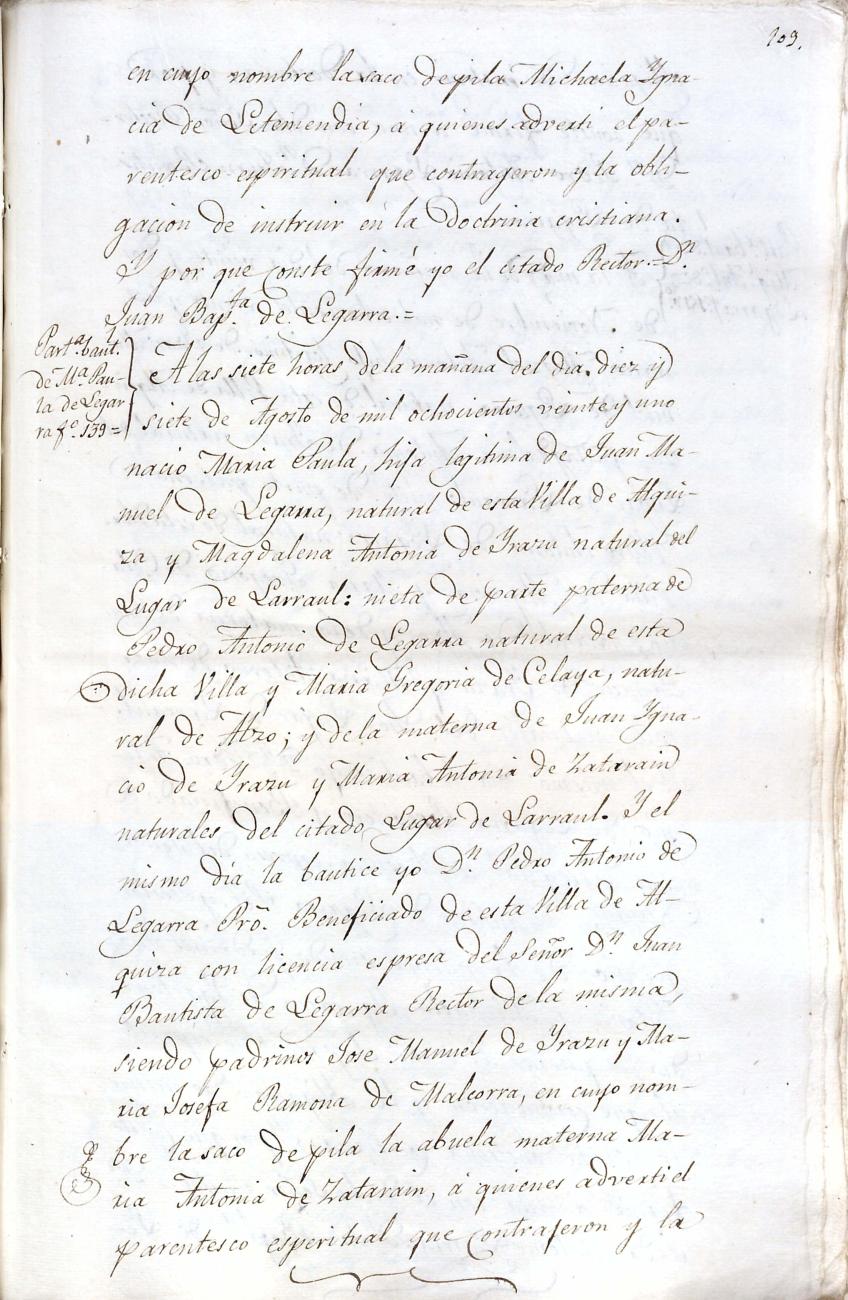 103.
en cuyo nombre la saco de pila Michaela Ygna-
cia de Letemendia, á quienes adverti el pa-
rentesco espiritual que contrageron y la obli-
gacion de instruir en la Doctrina cristiana.
Y por que Conste firmé yo el citado Rector.=Dn.
Juan Bapta. de Legarra.=
Parta. baut.
de Ma. Pau-
la de Legar
ra fo. 139=
A las siete horas de la mañana del dia diez y
siete de Agosto de mil ochocientos veinte y uno
nacio Maria Paula, hija legitima de Juan Ma-
nuel de Legarra, natural de esta Villa de Alqui-
za y Magdalena Antonia de Yrazu natural del
Lugar de Larraul: nieta de parte paterna de
Pedro Antonio de Legarra natural de esta
dicha Villa y Maria Gregoria de Celaya, natu-
ral de Abzo; y de la materna de Juan Ygna-
cio de Yrazu y Maria Antonia de Zatarain
naturales del citado Lugar de Larraul. Y el
mismo día la bautice yo Dn. Pedro Antonio de
Legarra Pro. Beneficiado de esta Villa de Al-
quiza con licencia espresa del Señor Dn. Juan
Bautista de Legarra Rector de la misma,
siendo padrinos Jose Manuel de Yrazu y Ma-
ria Josefa Ramona de Malcorra, en cuyo nom-
bre la saco de pila la abuela materna Ma-
ria Antonia de Zatarain, á quienes adverti el
parentesco esperitual que contrajeron y la